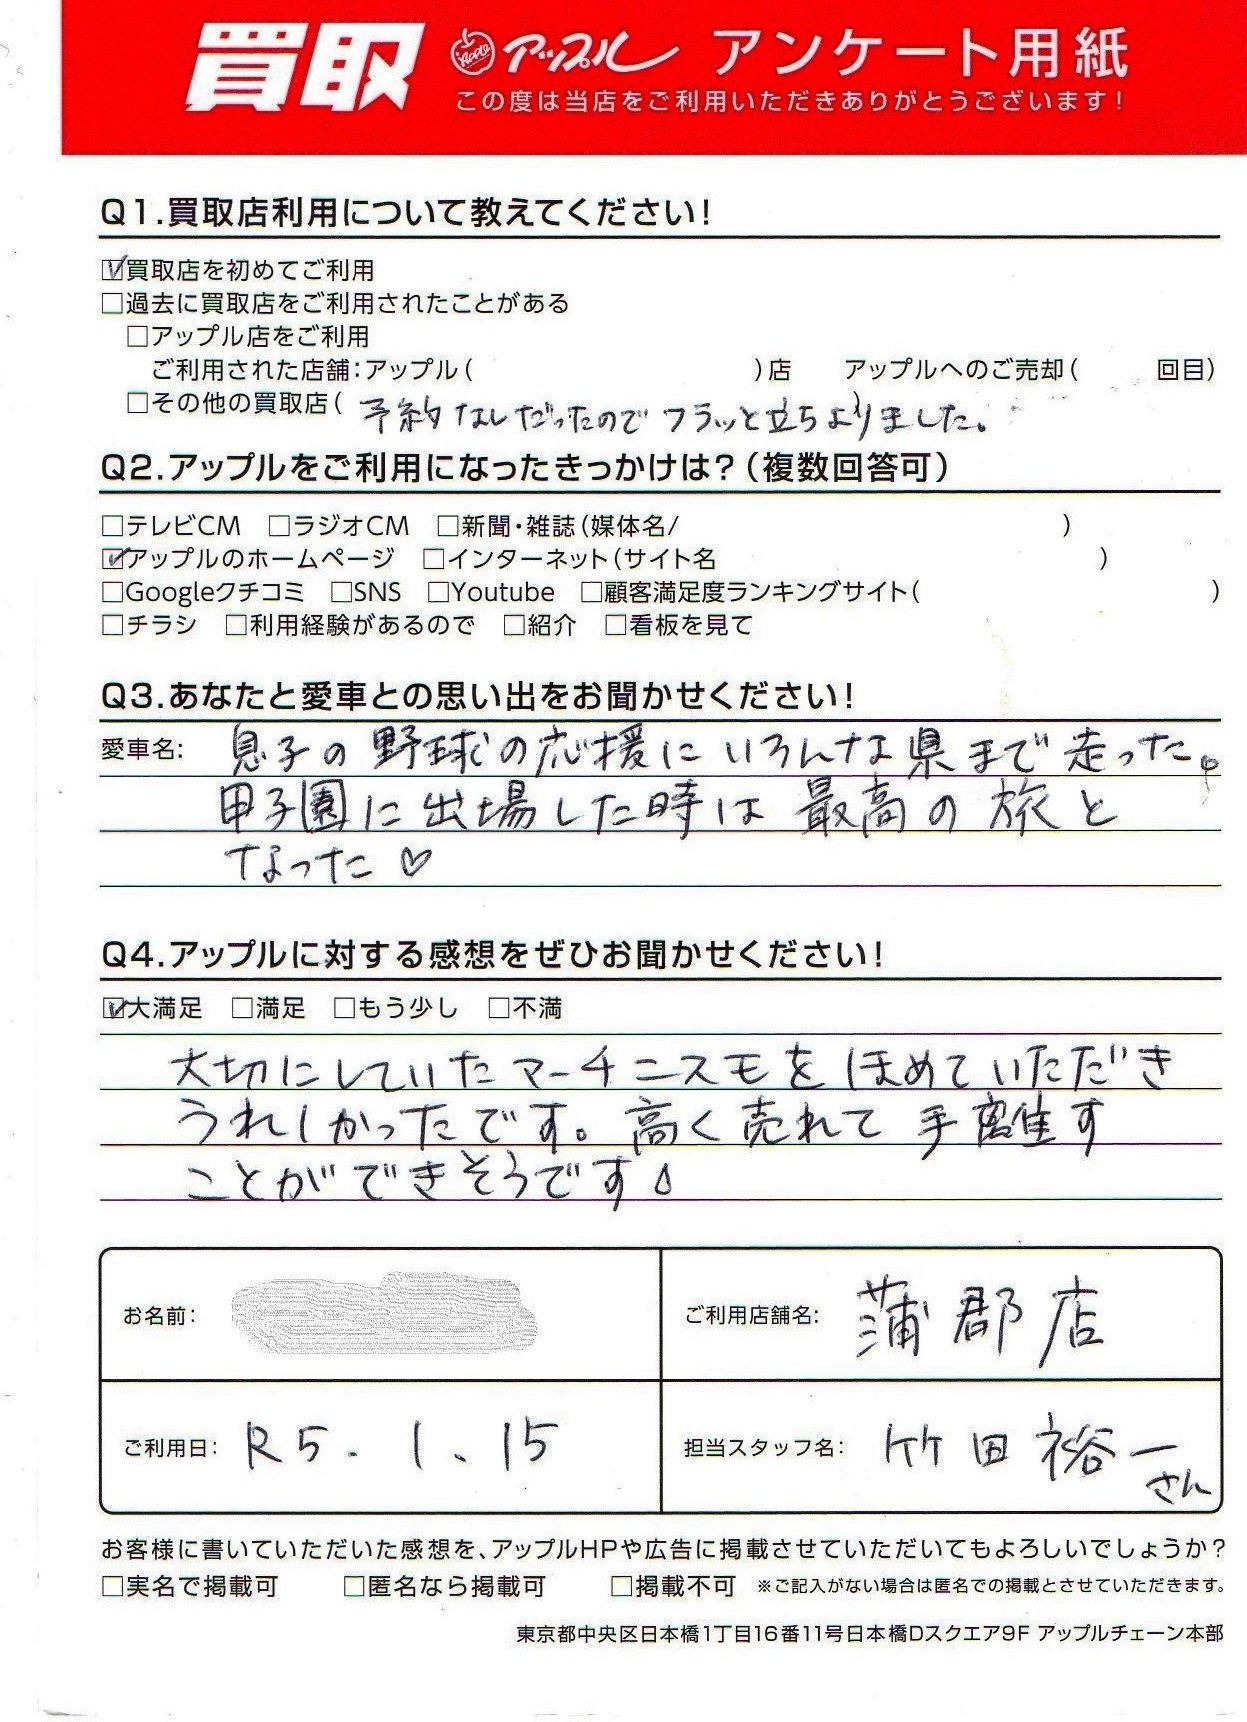 買取 Apple アップル アンケート用紙
この度は当店をご利用いただきありがとうございます!
Q1.買取店利用について教えてください!
☑買取店を初めてご利用
□過去に買取店をご利用されたことがある
□アップル店をご利用
ご利用された店舗:アップル( )店 アップルへのご売却( 回目)
□その他の買取店( 予約なしだったのでフラッと立ちよりました。
Q2.アップルをご利用になったきっかけは?(複数回答可)
□テレビCM □ラジオCM □新聞・雑誌(媒体名/ )
☑アップルのホームページ □インターネット(サイト名 )
□Googleクチコミ □SNS □Youtube □顧客満足度ランキングサイト( )
□チラシ □利用経験があるので □紹介 □看板を見て
Q3.あなたと愛車との思い出をお聞かせください!
愛車名: 息子の野球の応援にいろんな県まで走った。
甲子園に出場した時は最高の旅と
なった♡
Q4.アップルに対する感想をぜひお聞かせください!
☑大満足 □満足 □もう少し □不満
大切にしていたマーチニスモをほめていただき
うれしかったです。高く売れて手離す
ことができそうです
お名前: ご利用店舗名: 蒲郡店
ご利用日: R5.1.15 担当スタッフ名: 竹田裕一
さん
お客様に書いていただいた感想を、アップルHPや広告に掲載させていただいてもよろしいでしょうか?
□実名で掲載可 □匿名なら掲載可 □掲載不可 ※ご記入がない場合は匿名での掲載とさせていただきます。
東京都中央区日本橋1丁目16番11号日本橋Dスクエア9F アップルチェーン本部